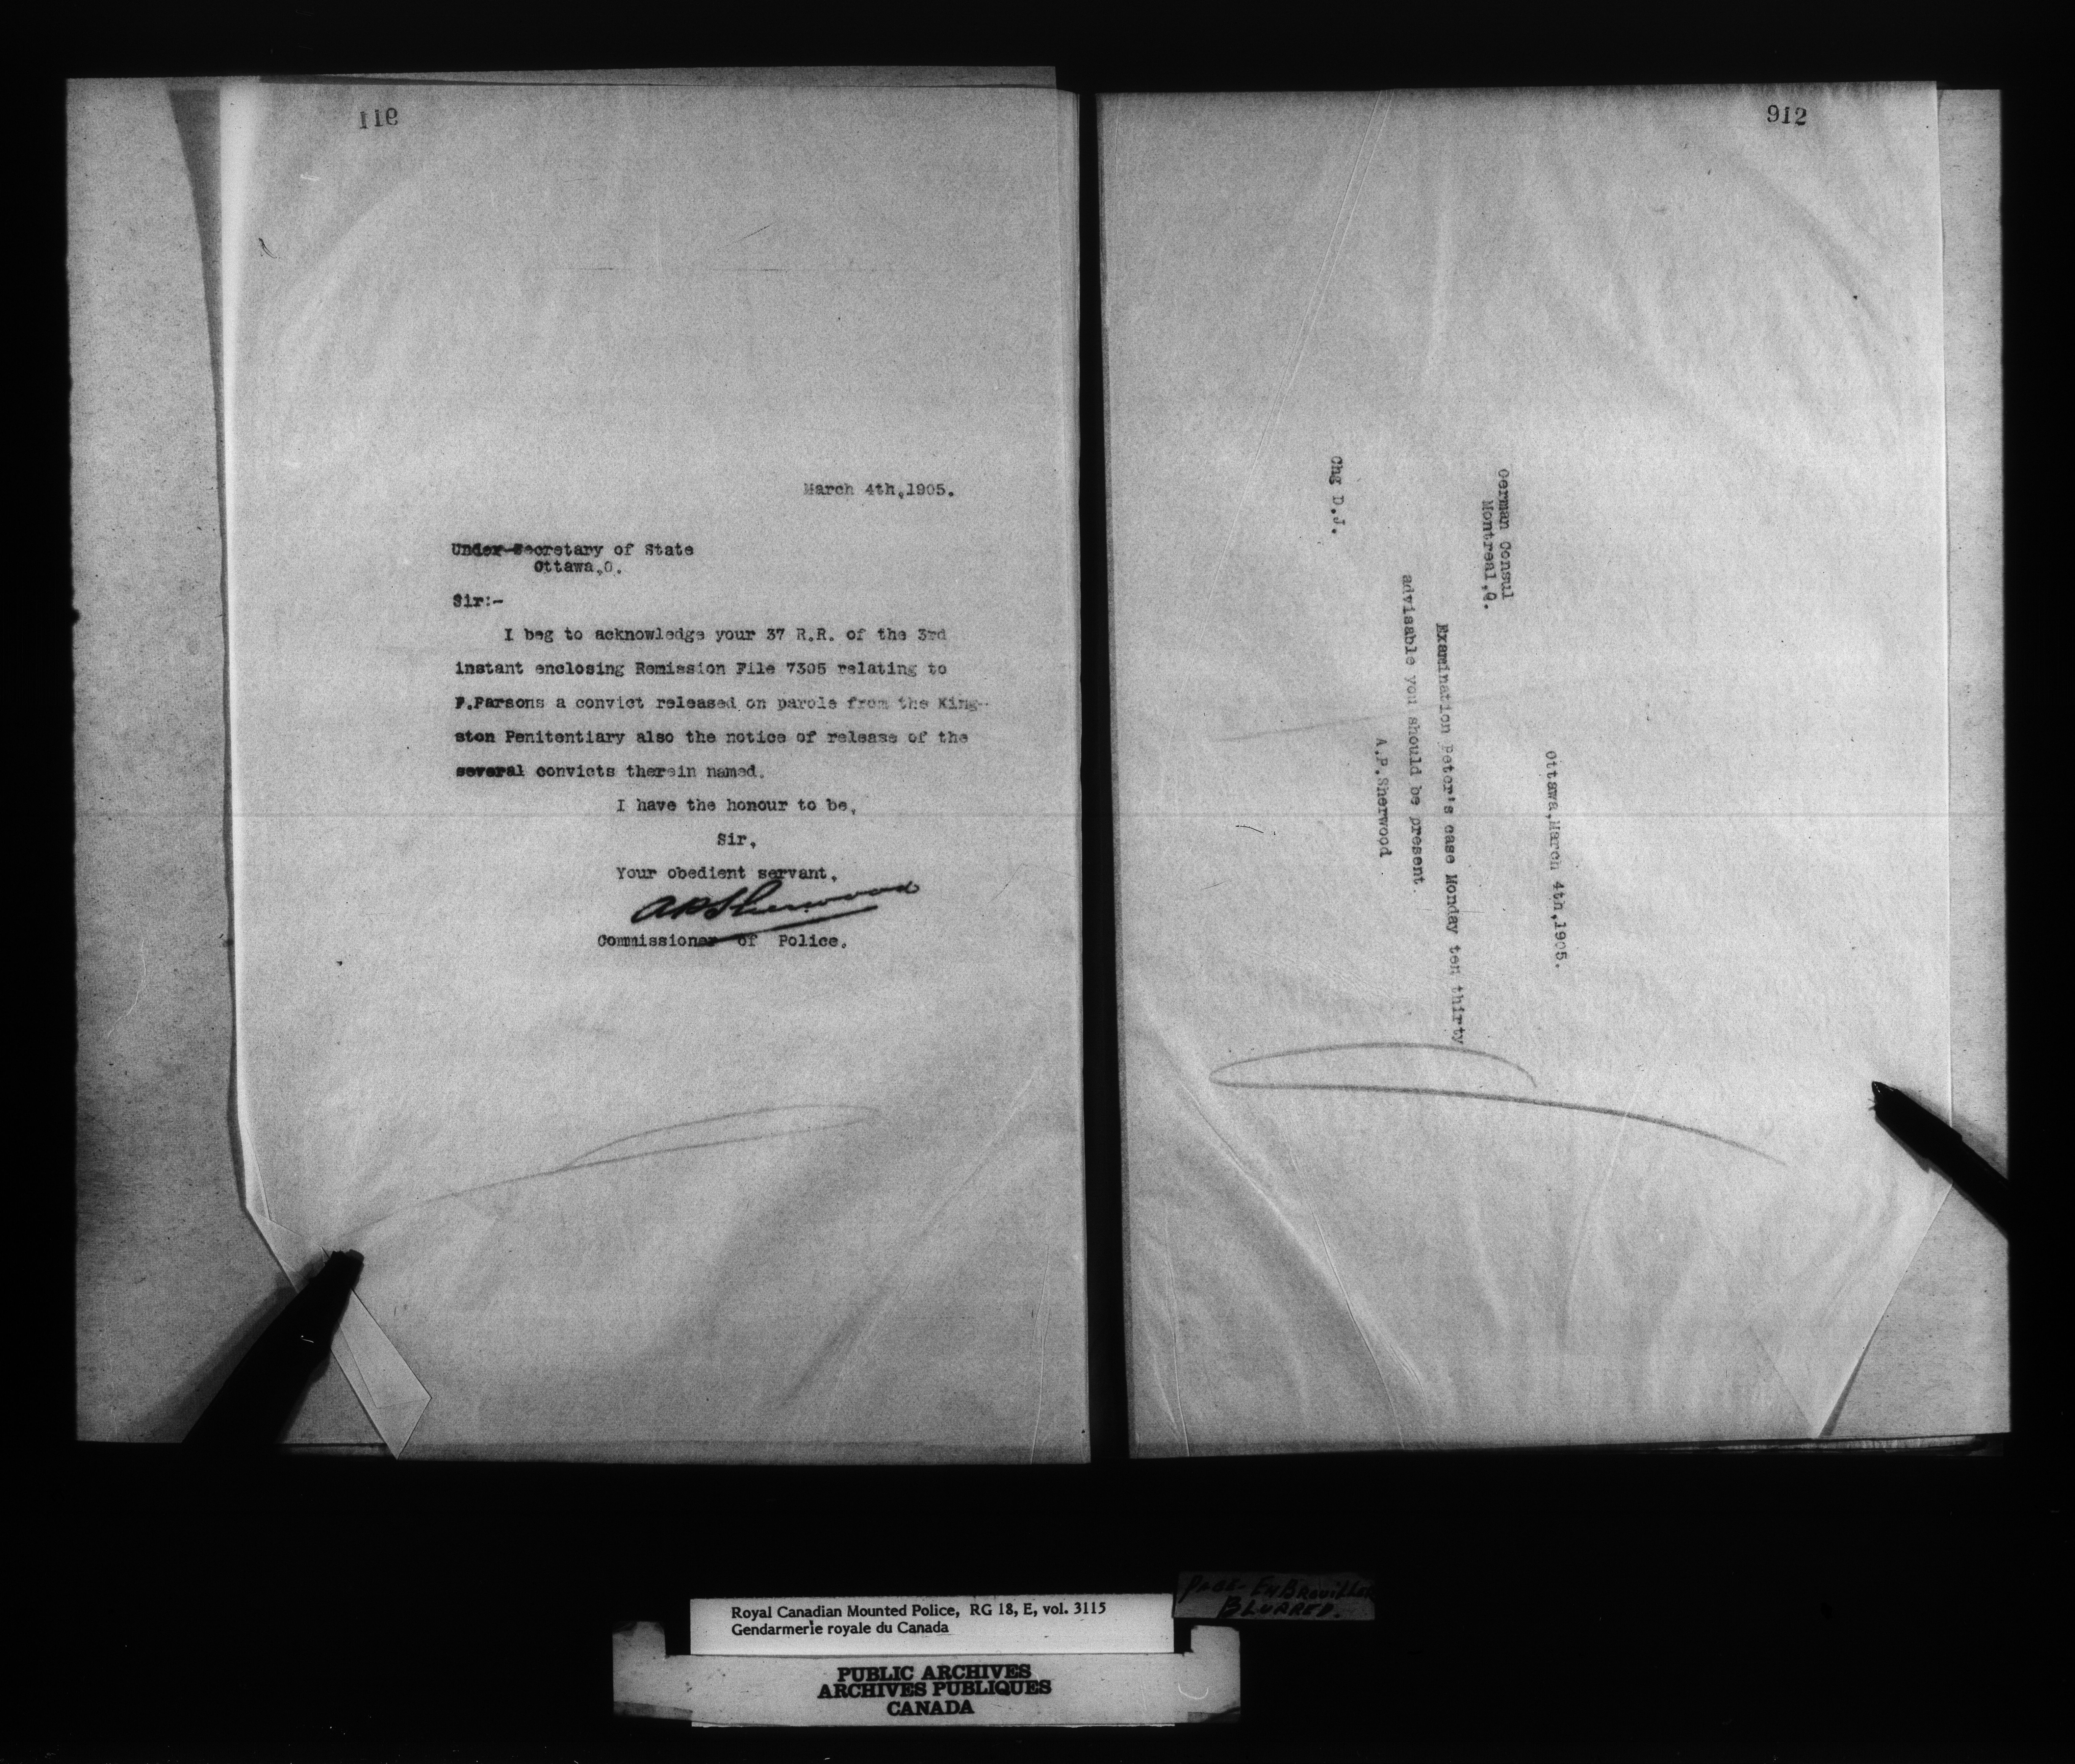 911
March 4th,1905.
Under-Secretary of State
Ottawa,O.
Sir:-
I beg to acknowledge your 37 R.R. of the 3rd
instant enclosing Remission File 7305 relating to
F.Parsons a convict released on parole from the King-
ston Penitentiary also the notice of release of the
several convicts therein named.
I have the honour to be,
Sir,
Your obedient servant,
APSherwood
Commissioner of Police.
912
Ottawa,March 4th,1905.
German Consul
Montreal,Q.
Examination Peter's case Monday ten thirty
advisable you should be present.
A.P.Sherwood
Chg D.J.
PAGE - EMBROUILLER
BLURRED.
Royal Canadian Mounted Police, RG 18, E, vol. 3115
Gendarmerie royale du Canada
PUBLIC ARCHIVES
ARCHIVES PUBLIQUES
CANADA